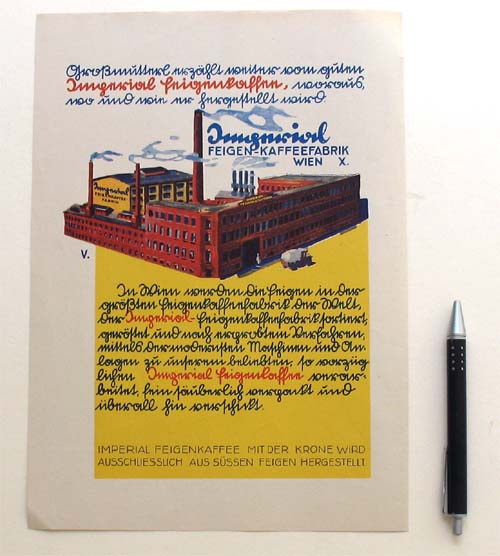 Großmutterl erzählt weiter vom guten
Imperial Feigenkaffee, woraus,
wo und wie er hergestellt wird.
Imperial
FEIGEN-KAFFEEFABRIK
WIEN X.
Imperial
FEIGENKAFFEE-
FABRIK
V.
In Wien werden die Feigen in der
größten Feigenkaffeefabrik der Welt,
der Imperial-Feigenkaffeefabrik sortiert,
geröstet und nach erprobtem Verfahren,
mittels der modernsten Maschinen und An-
lagen zu unserem beliebten, so vorzüg-
lichen Imperial Feigenkaffee verar-
beitet, fein säuberlich verpackt und
überall hin verschickt.
IMPERIAL FEIGENKAFFEE MIT DER KRONE WIRD
AUSSCHLIESSLICH AUS SÜSSEN FEIGEN HERGESTELLT